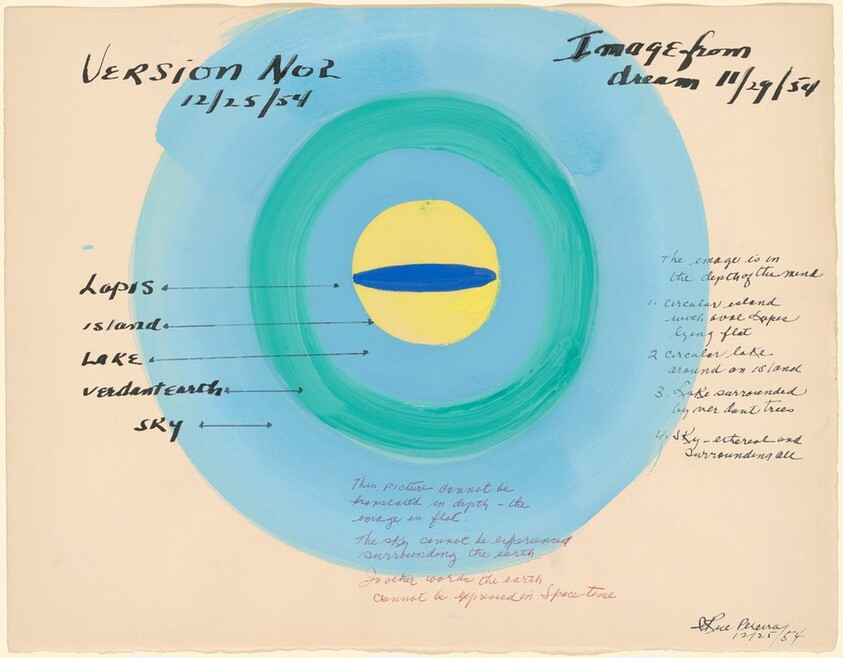 Version No2
12/25/54
Image from
dream 11/29/54
Lapis
island
Lake
verdant earth
sky
The image is in
the depth of the mind
1. circular island
with oval Lapis
lying flat
2 circular lake
around an island
3. Lake surrounded
by verdant trees
4. Sky – ethereal and
surrounding all
This picture cannot be
translated in depth – the
image is flat
The sky cannot be experienced
surrounding the earth
In other words the earth
cannot be expressed in Space-time
I Rice Pereira
12/25/54